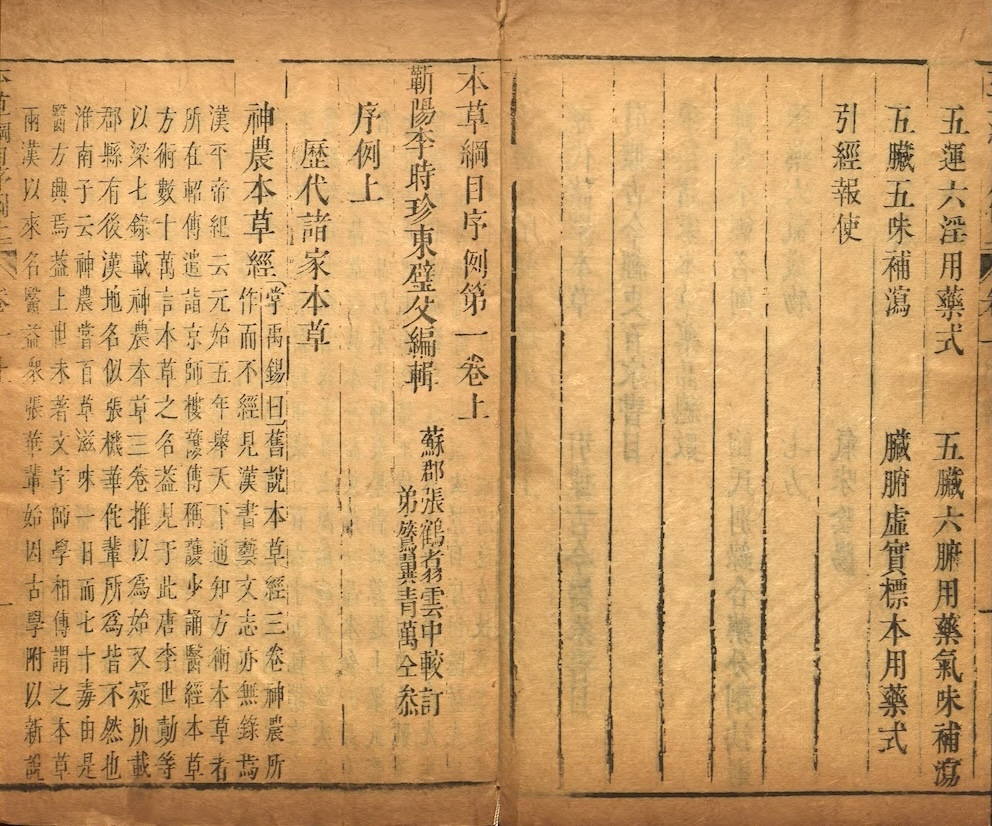 五運六淫用藥式　五臟六腑用藥氣味補瀉
五臟五味補瀉　臟腑虛實標本用藥式
引經報使
本草綱目序例第一卷上
蘄陽李時珍東璧父編輯
蘇郡張鶴䎘雲中較訂
弟䎖青萬仝叅
序例上
歷代諸家本草
神農本草經
掌禹錫曰舊說本草經三卷神農所
作而不經見漢書藝文志亦無錄焉
漢平帝紀云元始五年舉天下通知方術本草者
所在軺傳遣詣京師樓護傳稱護少誦醫經本草
方術數十萬言本草之名蓋見于此唐李世勣等
以梁七錄載神農本草三卷推以為始又疑所載
郡縣有後漢地名似張機華佗輩所為皆不然也
淮南子云神農嘗百草滋味一日而七十毒由是
醫方興焉葢上世未著文字師學相傳謂之本草
兩漢以來名醫益衆張華輩始因古學附以新說